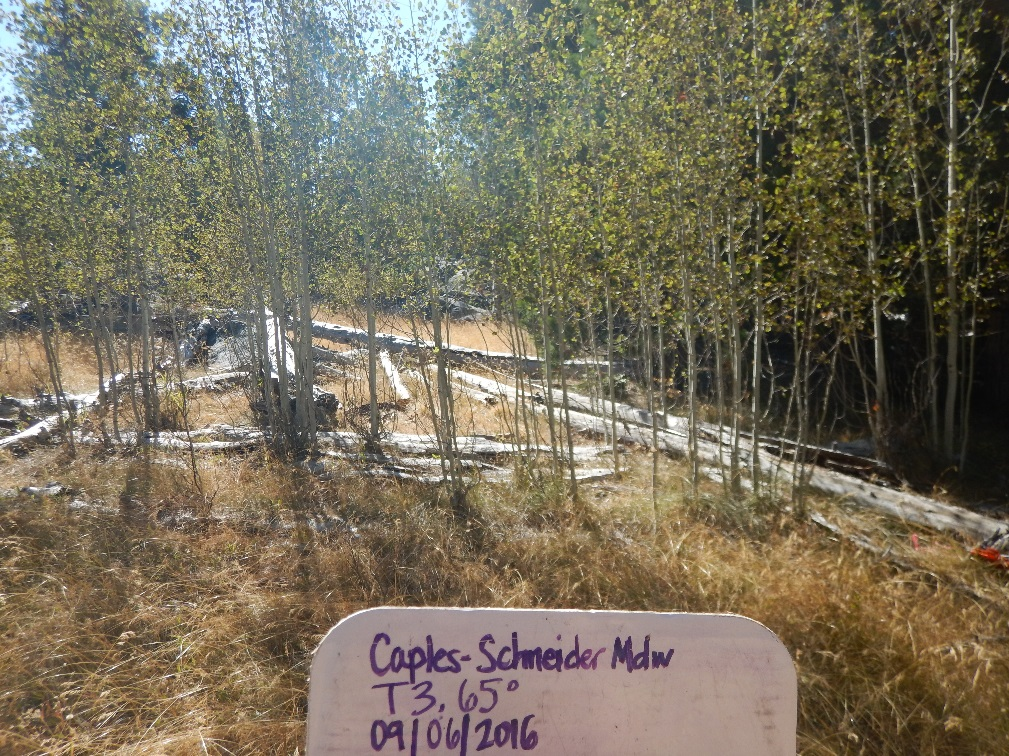 Caples-Schneider Mdw
T3, 65°
09/06/2016